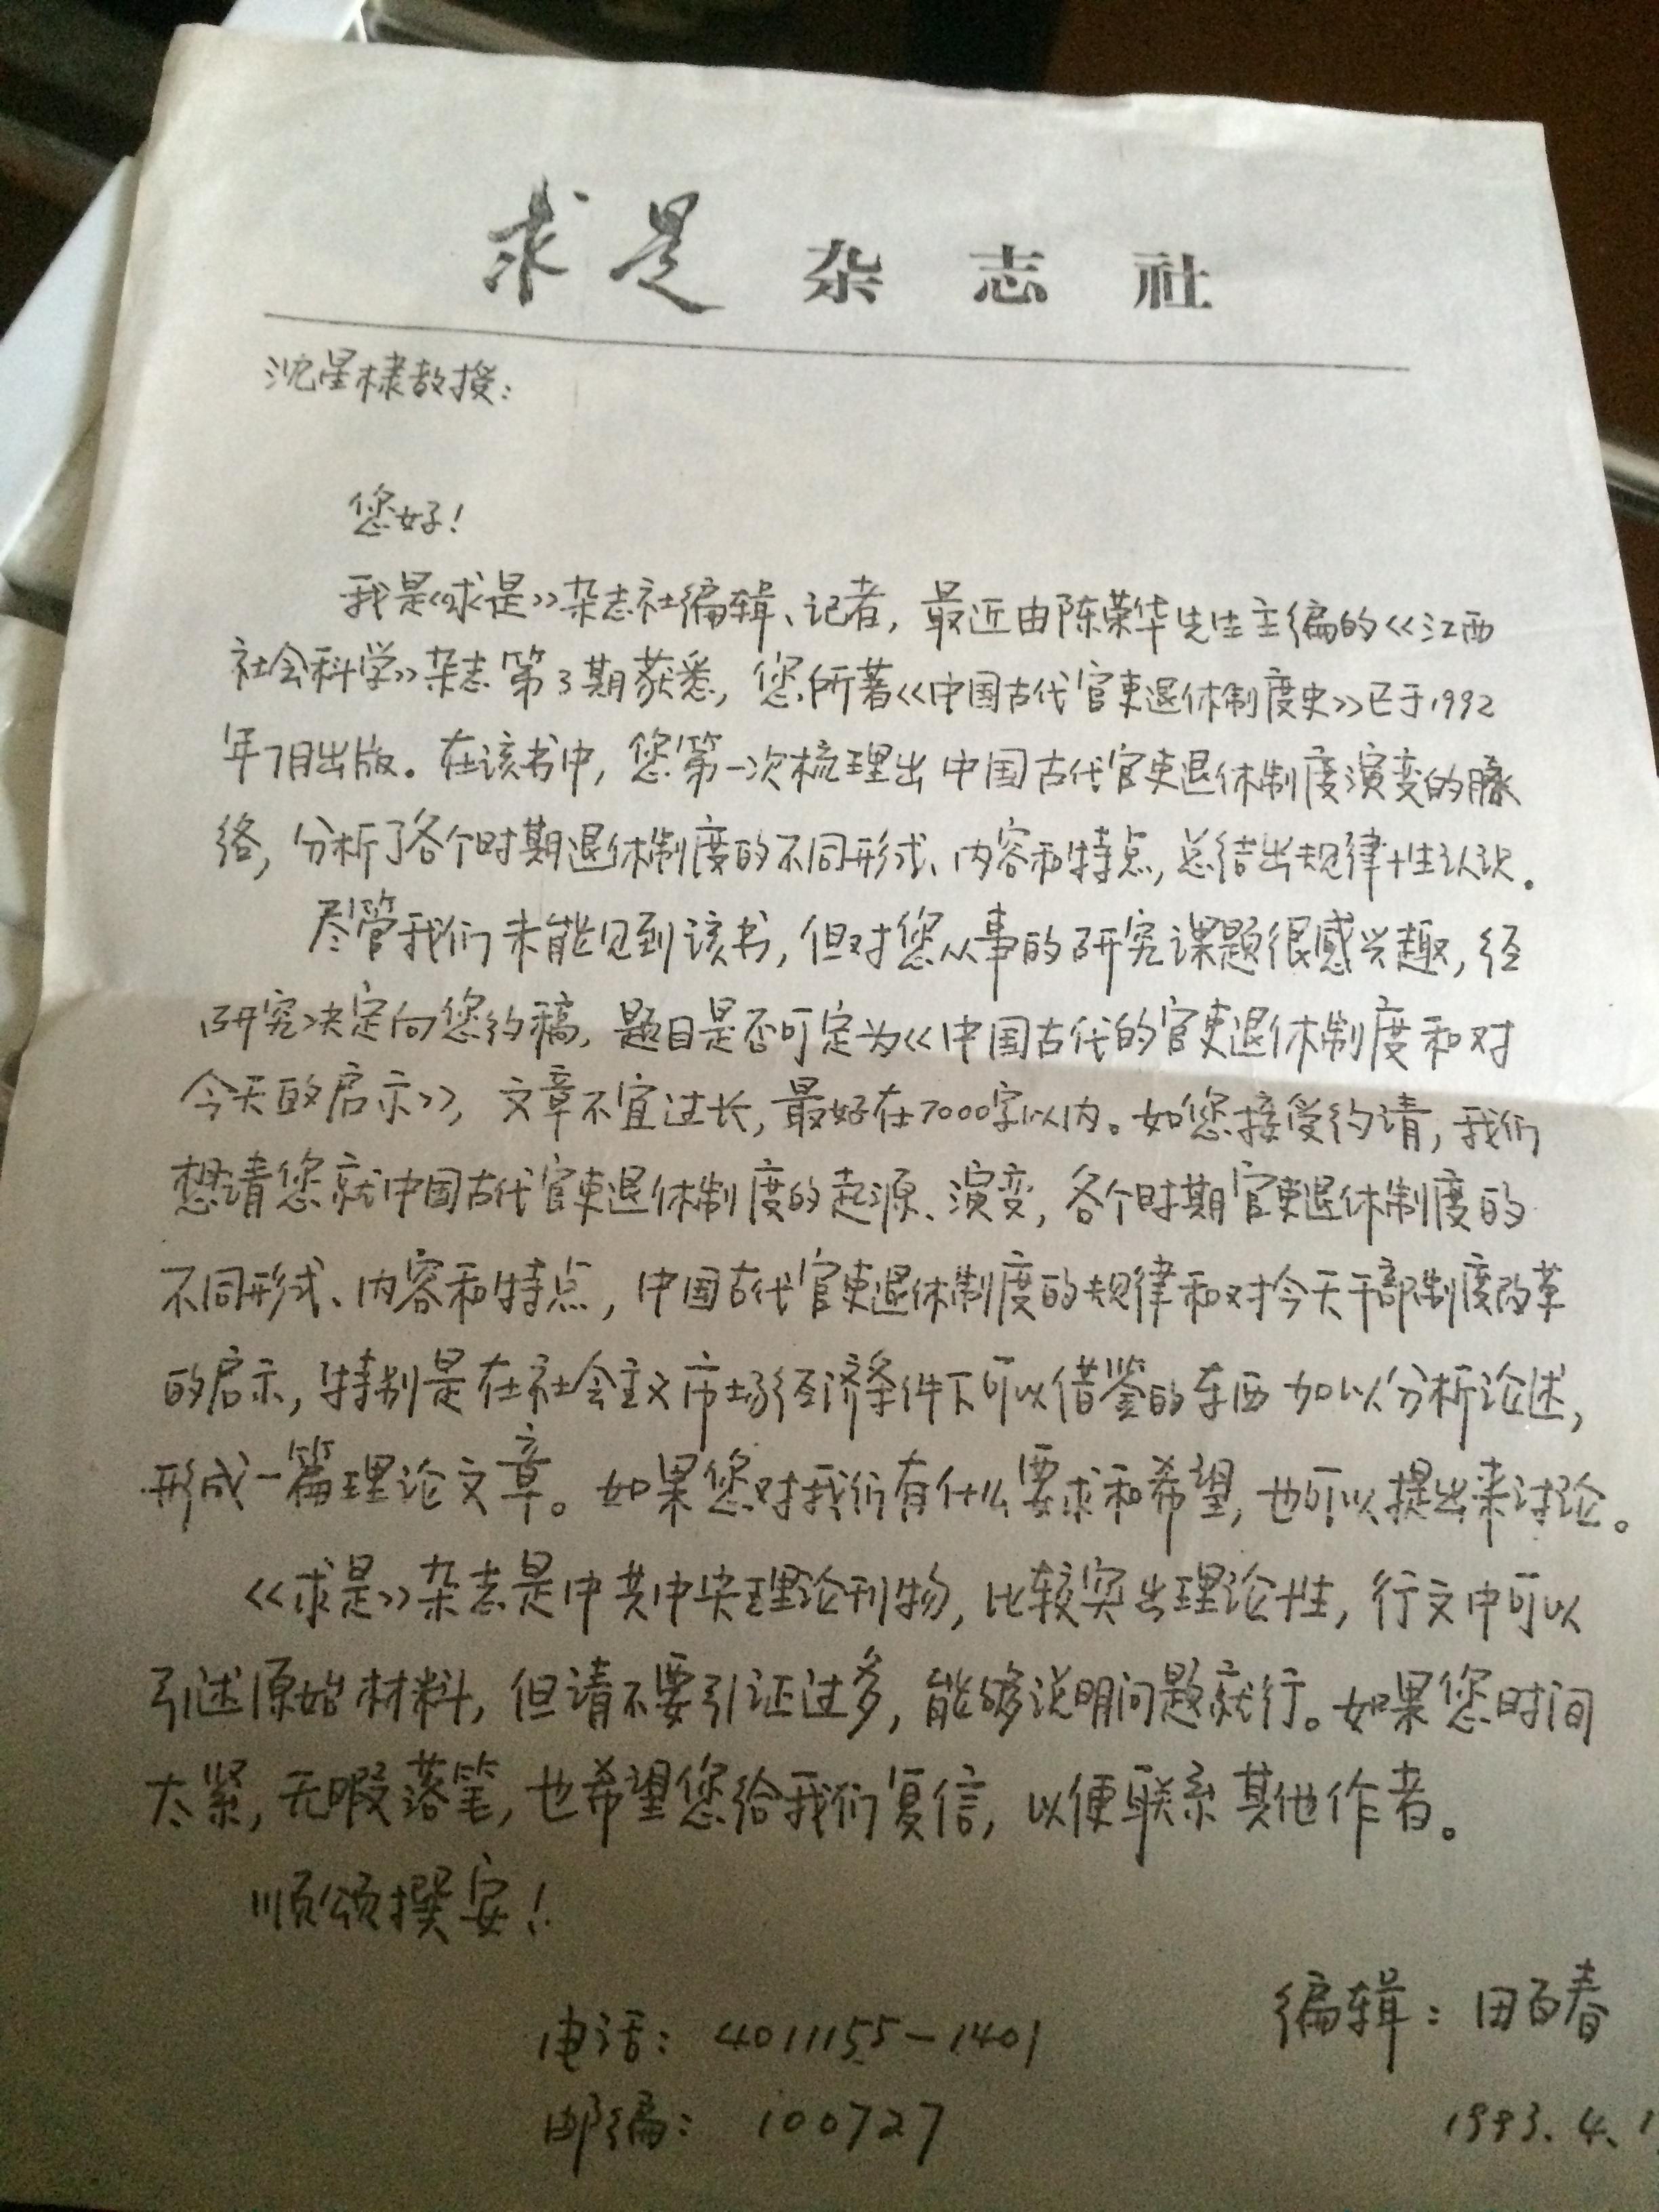 求是杂志社
沈星棣教授：
您好！
我是《求是》杂志社编辑、记者，最近由陈荣华先生主编的《江西
社会科学》杂志第3期获悉，您所著《中国古代官吏退休制度史》已于1992
年7月出版。在该书中，您第一次梳理出中国古代官吏退休制度演变的脉
络，分析了各个时期退休制度的不同形式、内容和特点，总结出规律性认识。
尽管我们未能见到该书，但对您从事的研究课题很感兴趣，经
研究决定向您约稿，题目是否可定为《中国古代的官吏退休制度和对
今天的启示》，文章不宜过长，最好在7000字以内。如您接受约请，我们
想请您就中国古代官吏退休制度的起源、演变，各个时期官吏退休制度的
不同形式、内容和特点，中国古代官吏退休制度的规律和对今天干部制度改革
的启示，特别是在社会主义市场经济条件下可以借鉴的东西加以分析论述，
形成一篇理论文章。如果您对我们有什么要求和希望，也可以提出来讨论。
《求是》杂志是中共中央理论刊物，比较突出理论性，行文中可以
引述原始材料，但请不要引证过多，能够说明问题就行。如果您时间
太紧，无暇落笔，也希望您给我们复信，以便联系其他作者。
顺颂撰安！
编辑：田百春
电话：4011155-1401
邮编：100727
1993.4.1